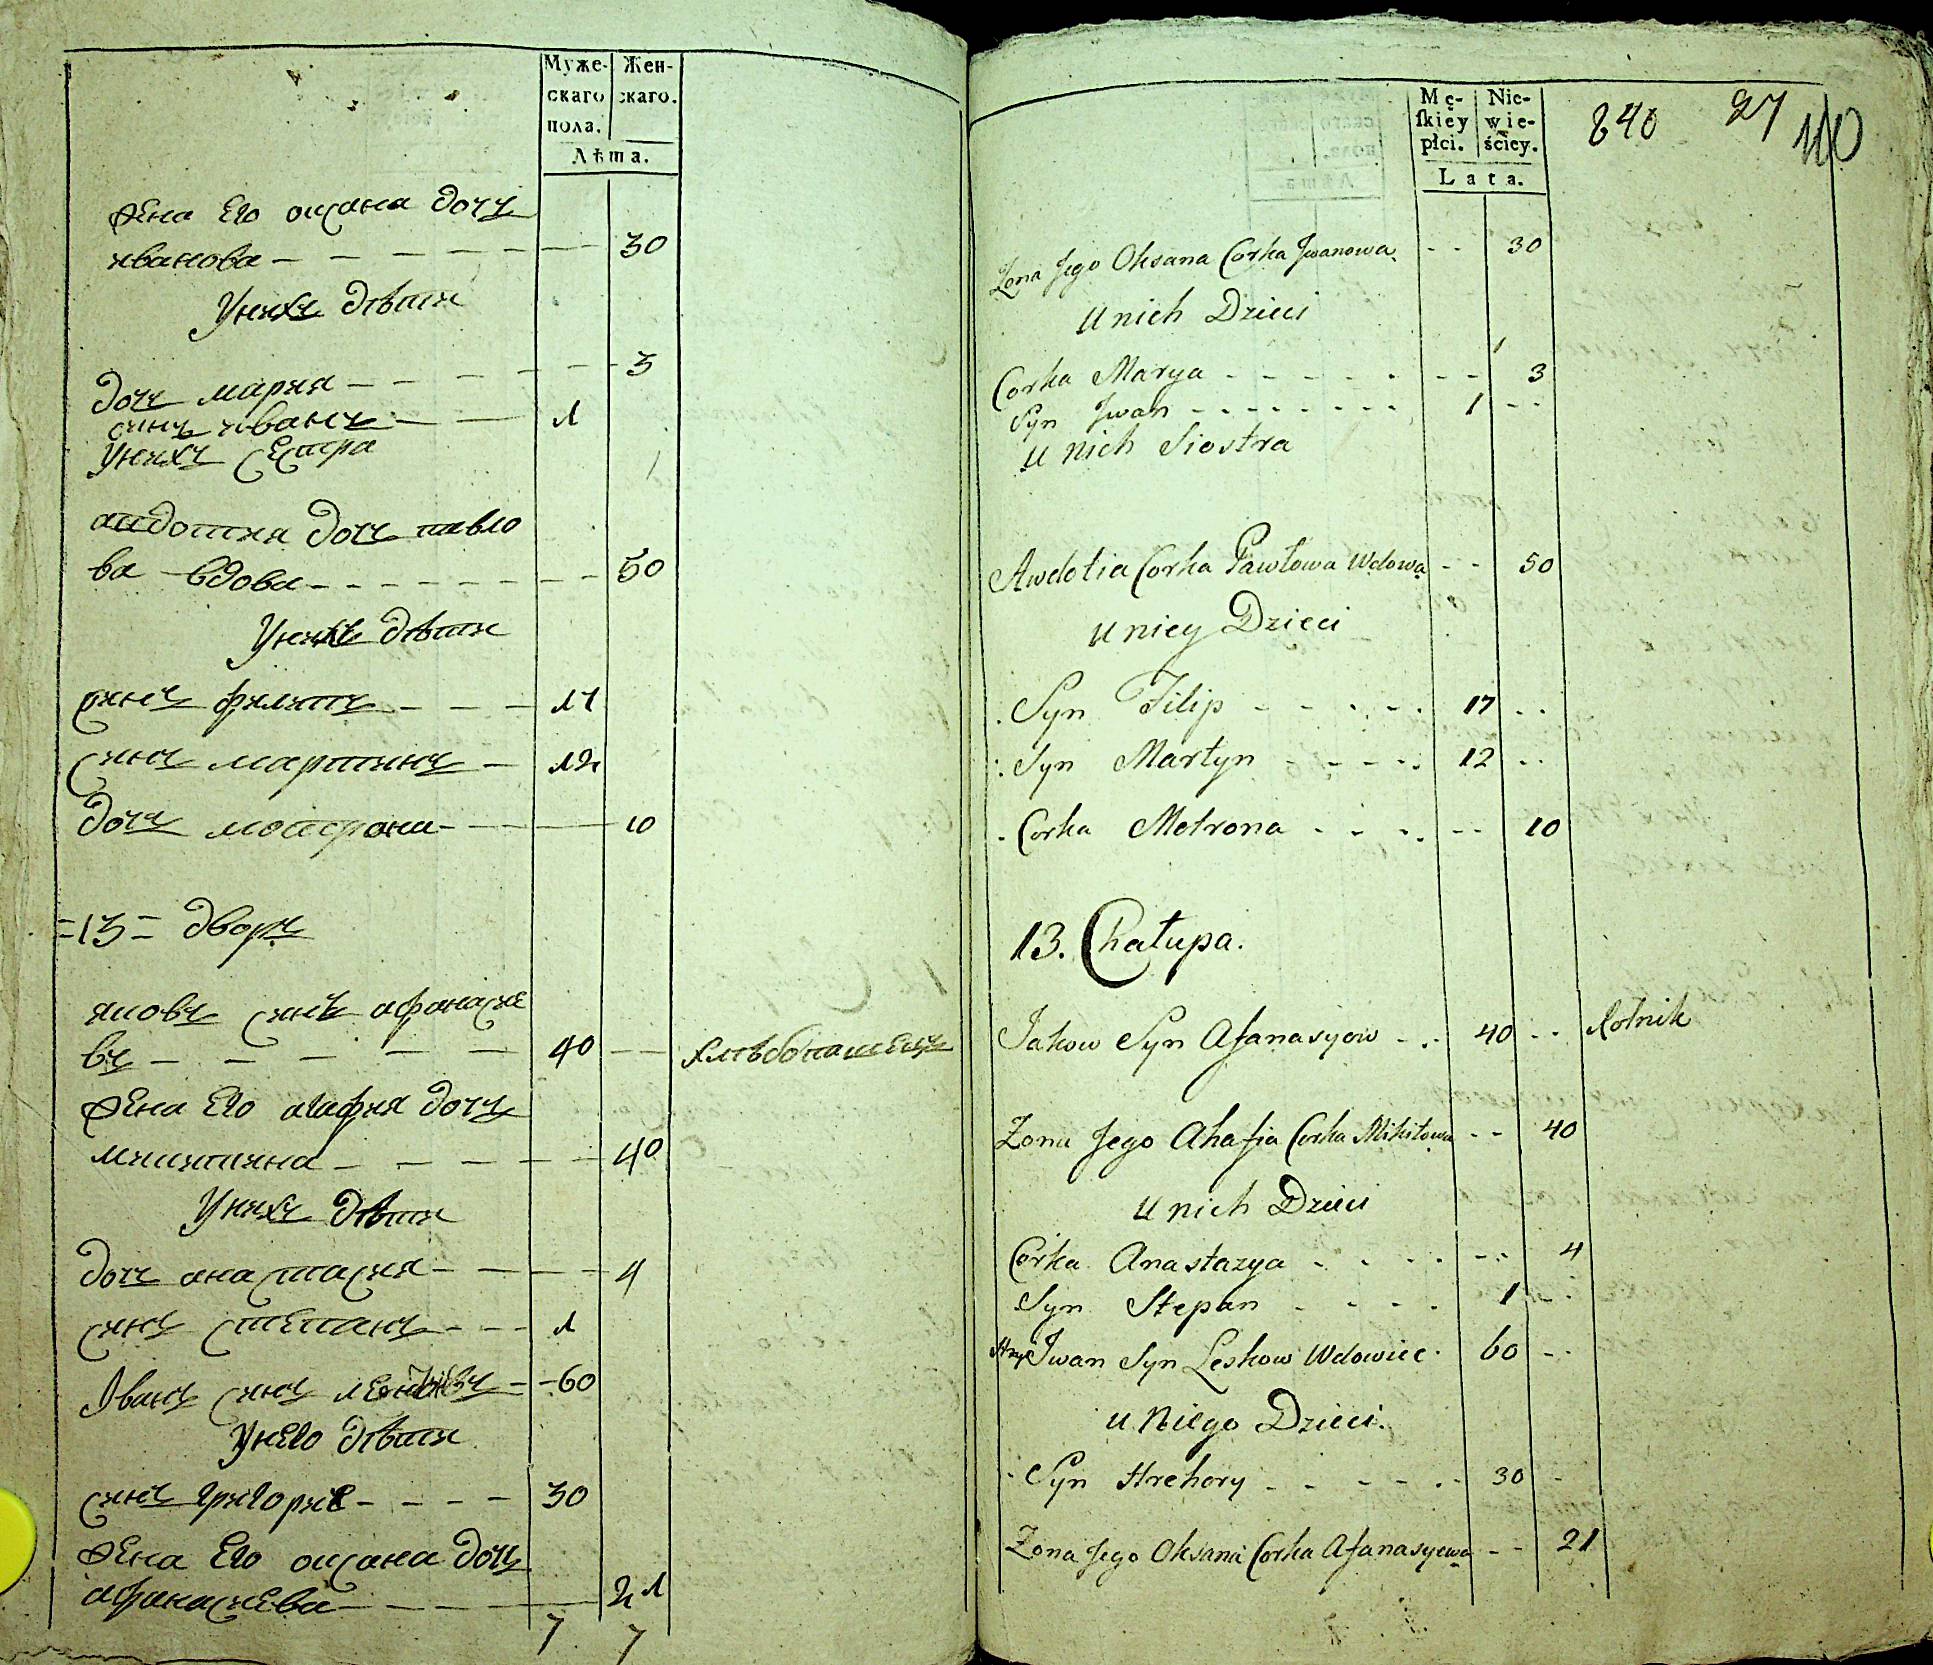 Муже-
скаго
пола.
Жен-
скаго.
Лѣта.
жена Его оксана дочъ
иванова 30
Унихъ дѣти
дочъ мария 3
синъ иванъ 1
Унихъ сестра
авдотиа дочъ павло
ва вдова 50
Унихъ дѣти
синъ филипъ 17
синъ мартинъ 12
дочъ мотрона 10
=13= дворъ
яковъ синъ афанасие
въ 40 хлѣбопашецъ
жена Его агафия дочъ
микитина 40
Унихъ дѣти
дочъ анастасия 4
синъ степанъ 1
Іванъ синъ 60
Унего дѣти
синъ григорие 30
жена Его оксана дочъ
афанасиева 21
7 7
Mę-
skiey
płci.
Nie-
wie-
ściey.
Lata.
840 27 110
Zona Jego Oksana Corka Jwanowa 30
U nich Dzieci
Corka Marya 3
Syn Jwan 1
U nich Siostra
Awdotia Corka Pawłowa Wdowa 50
U niey Dzieci
Syn Filip 17
Syn Martyn 12
Corka Motrona 10
13. Chałupa.
Jakow Syn Afanasyow 40 Rolnik
Zona Jego Ahafia Corka Mikitowa 40
U nich Dzieci
Corka Anastazya 4
Syn Stepan 1
Stry Jwan Syn Leskow Wdowiec 60
U Niego Dzieci.
Syn Hrehory 30
Zona Jego Oksana Corka Afanasyewa 21